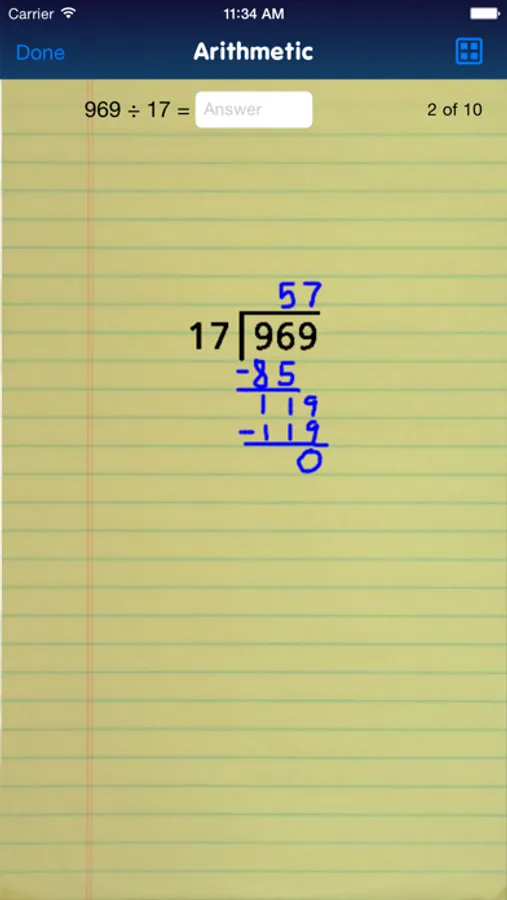 Carrier 11:34 AM
Done Arithmetic
969 ÷ 17 = Answer 2 of 10
57
17 969
-85
119
-119
0